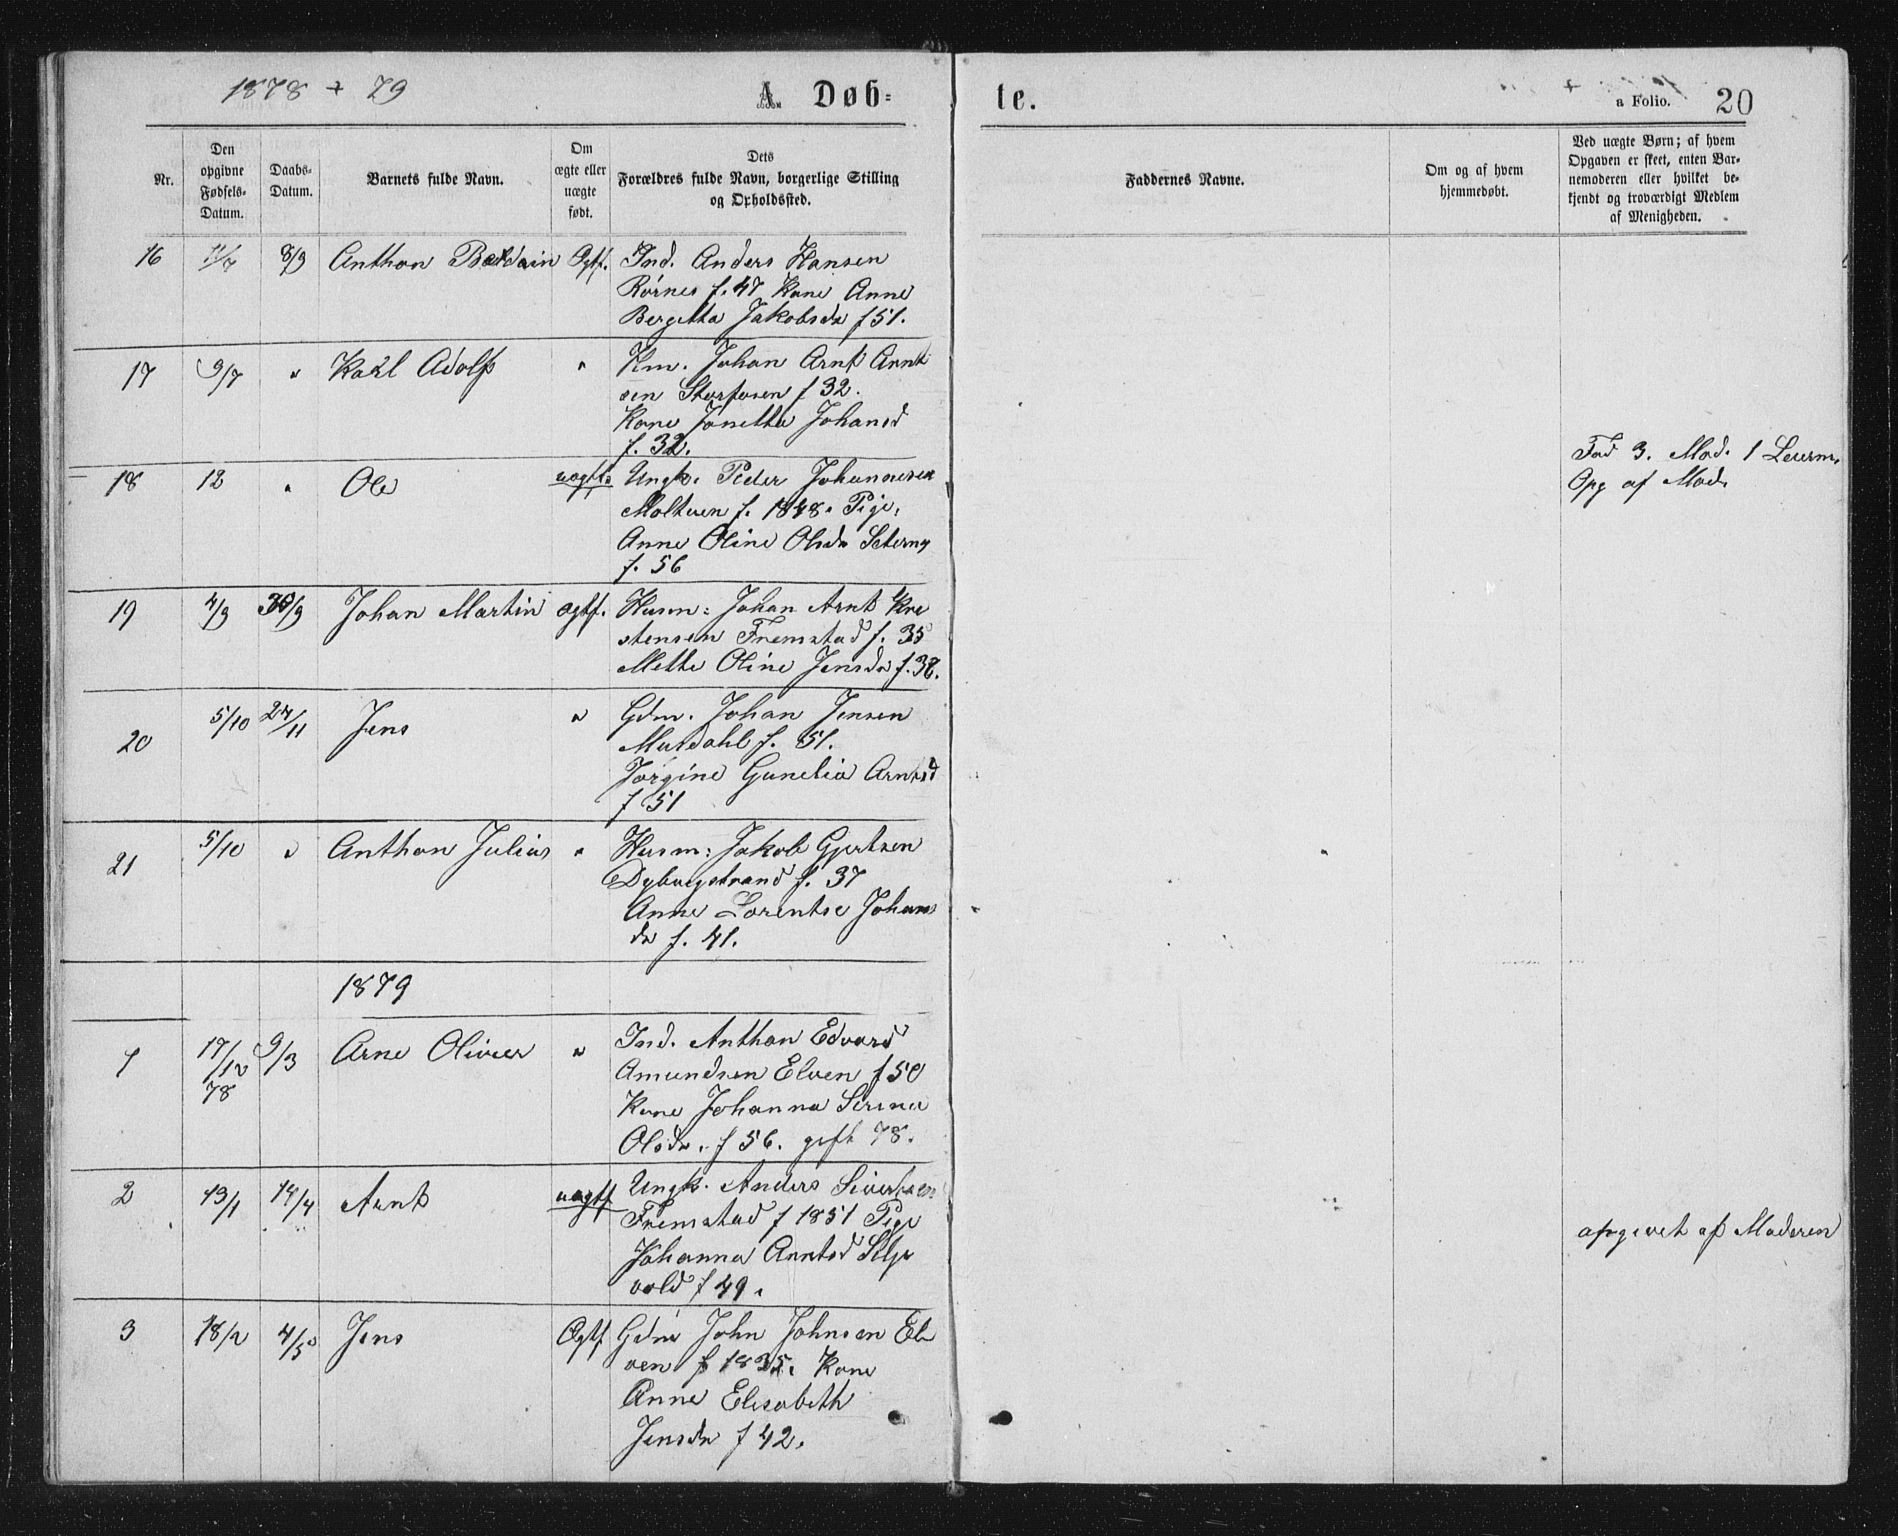 1878 + 79
A. Døb-
te.
a Folio. 20
Nr.
Den opgivne Fødsels-Datum.
Daabs-Datum.
Barnets fulde Navn.
Om ægte eller uægte født.
Dets Forældres fulde Navn, borgerlige Stilling og Opholdssted.
Faddernes Navne.
Om og af hvem hjemmedøbt.
Ved uægte Børn; af hvem Opgaven er skeet, enten Barnemoderen eller hvilket bekjendt og troværdigt Medlem af Menigheden.
16 11/7 8/9 Anthon Ægtf. Ind. Anders Hansen
Rørnes f. 47 Kone Anne
Bergitta Jakobsdr f 51.
17 9/7 " Karl Adolf " Johan Arnt Arnt
sen Storfosen f 32.
Kone Janetta Johansd
f. 32.
18 12 " Ole uægtf. Ungk. Peder Johannesen
f. 1848. Pige.
Anne Oline Olsdr
f. 56
Fad 3. Mod. 1 Leierm.
Opg af Mod.
19 4/9 30/9 Johan Martin ægtf. Husm: Johan Arnt Kri
stensen Fremstad f. 35
Mette Oline Jensdr f. 38.
20 5/10 24/11 Jens " Gdm. Johan Jensen
Murdahl f. 51.
Jørgine Gunelia Arntsd
f 51
21 5/10 " Anthon Julius " Husm: Jakob Gjertsen
Dybvigstrand f. 37
Anne Lorentse Johans
dr f. 41.
1879
1 17/12 78 9/3 Arne Olivier " Ind. Anthon Edvard
Amundsen Elven f 50
Kone Johanna Serina
Olsdr. f 56. gift 78.
2 13/1 14/4 Arnt uægtf Ungk. Anders Sivertsen
Fremstad f 1851 Pige
Johanna Arntsd Selje
vold f 49.
opgivet af Moderen
3 18/2 4/5 Jens Ægtf Gdm John Johnsen El
ven f 1835. Kone
Anne Elisabeth
Jensdr f 42.